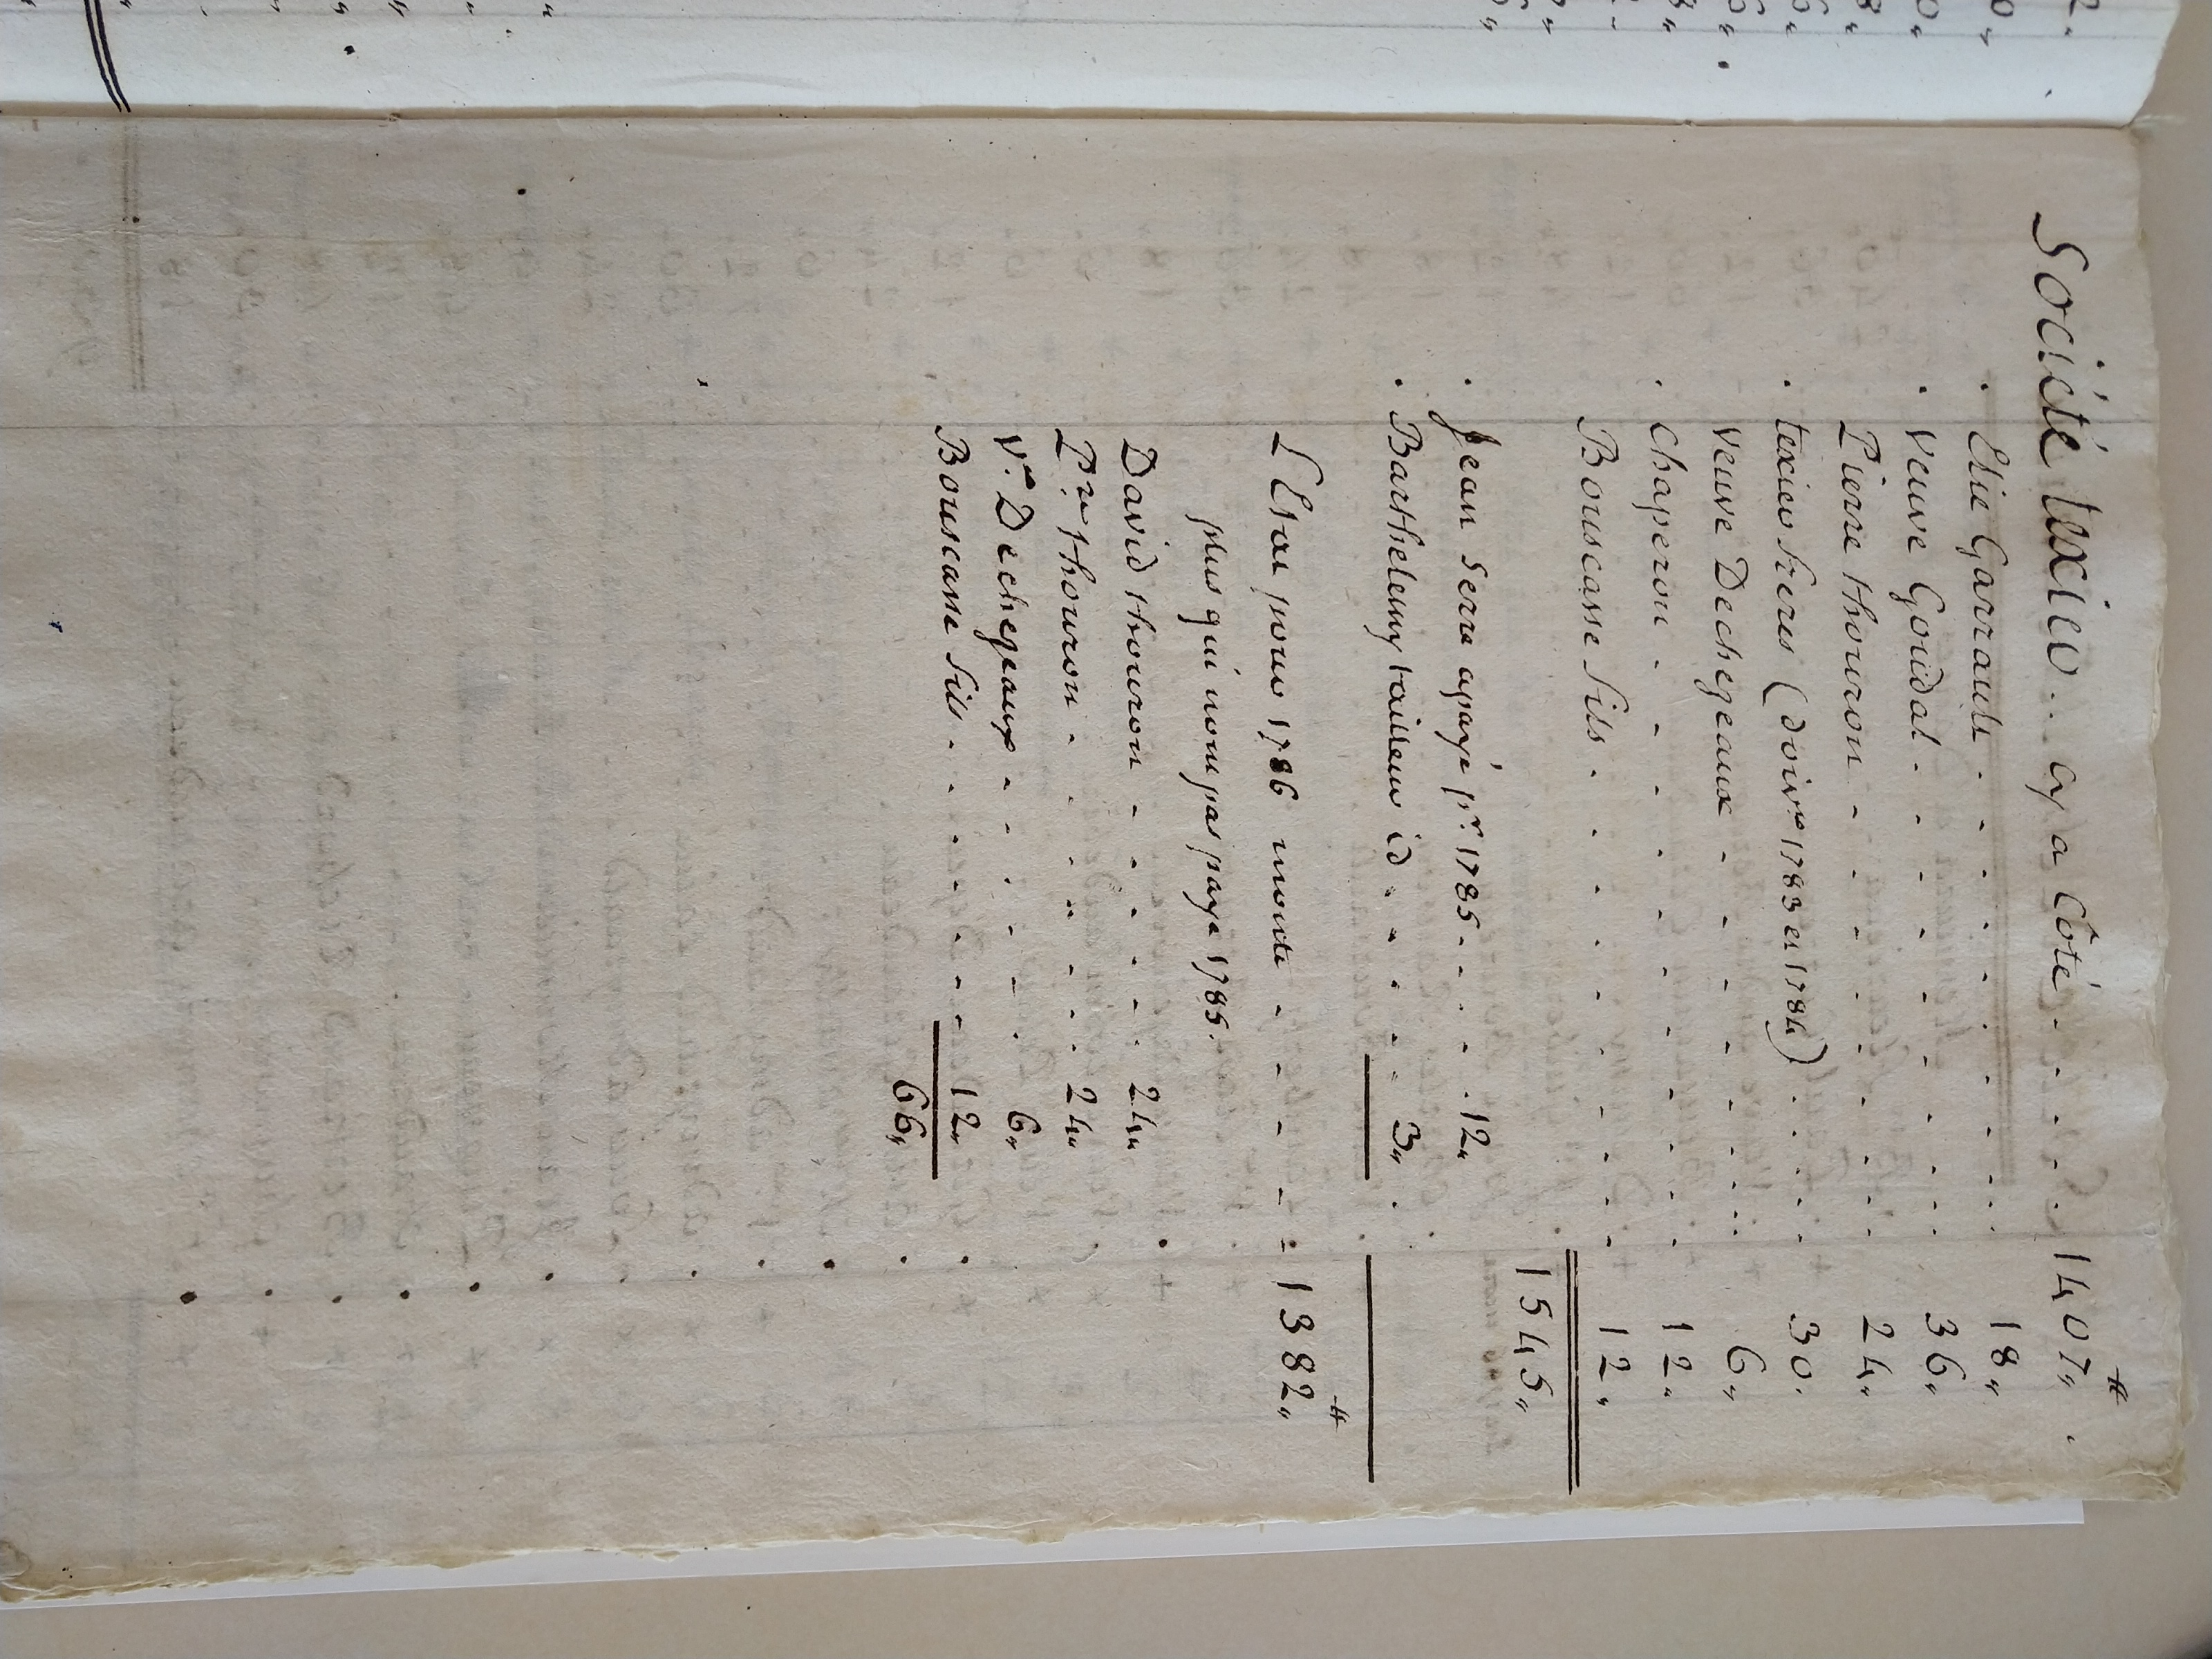 Societé texier.. cy a Coté . . . . . 1407"
Elie Garrault . . . . . . . . . 18"
Veuve Goudal . . . . . . . . . 36"
Pierre thouron . . . . . . . . 24"
texier freres (doivt 1783 et 1784) . . . . 30.
Veuve Dechegeaux . . . . . . . . 6"
Chaperon . . . . . . . . . 12"
Bouscasse fils . . . . . . . . . 12"
1545"
Jean Serre apayé pr. 1785 . . . . 12"
Barthelemy tailleur id . . . . . 3"
L Etat pour 1786 monte . . . . . 1382"
plus qui nont pas payé 1785.
David thouron . . . . . . 24"
P.re thouron . . . . . . 24"
V.e Dechegeaux . . . . . . 6"
Bouscasse fils . . . . . . 12"
66"